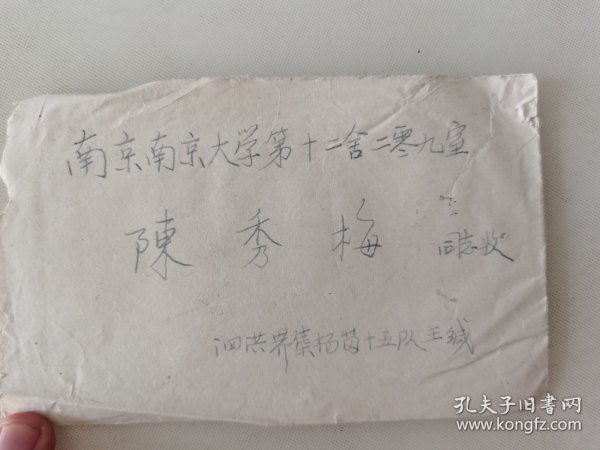 南京南京大学第十二舍二零九室
陳秀梅 同志收
泗洪界集杨茵十五队王缄
孔夫子旧书网
www.kongfz.com